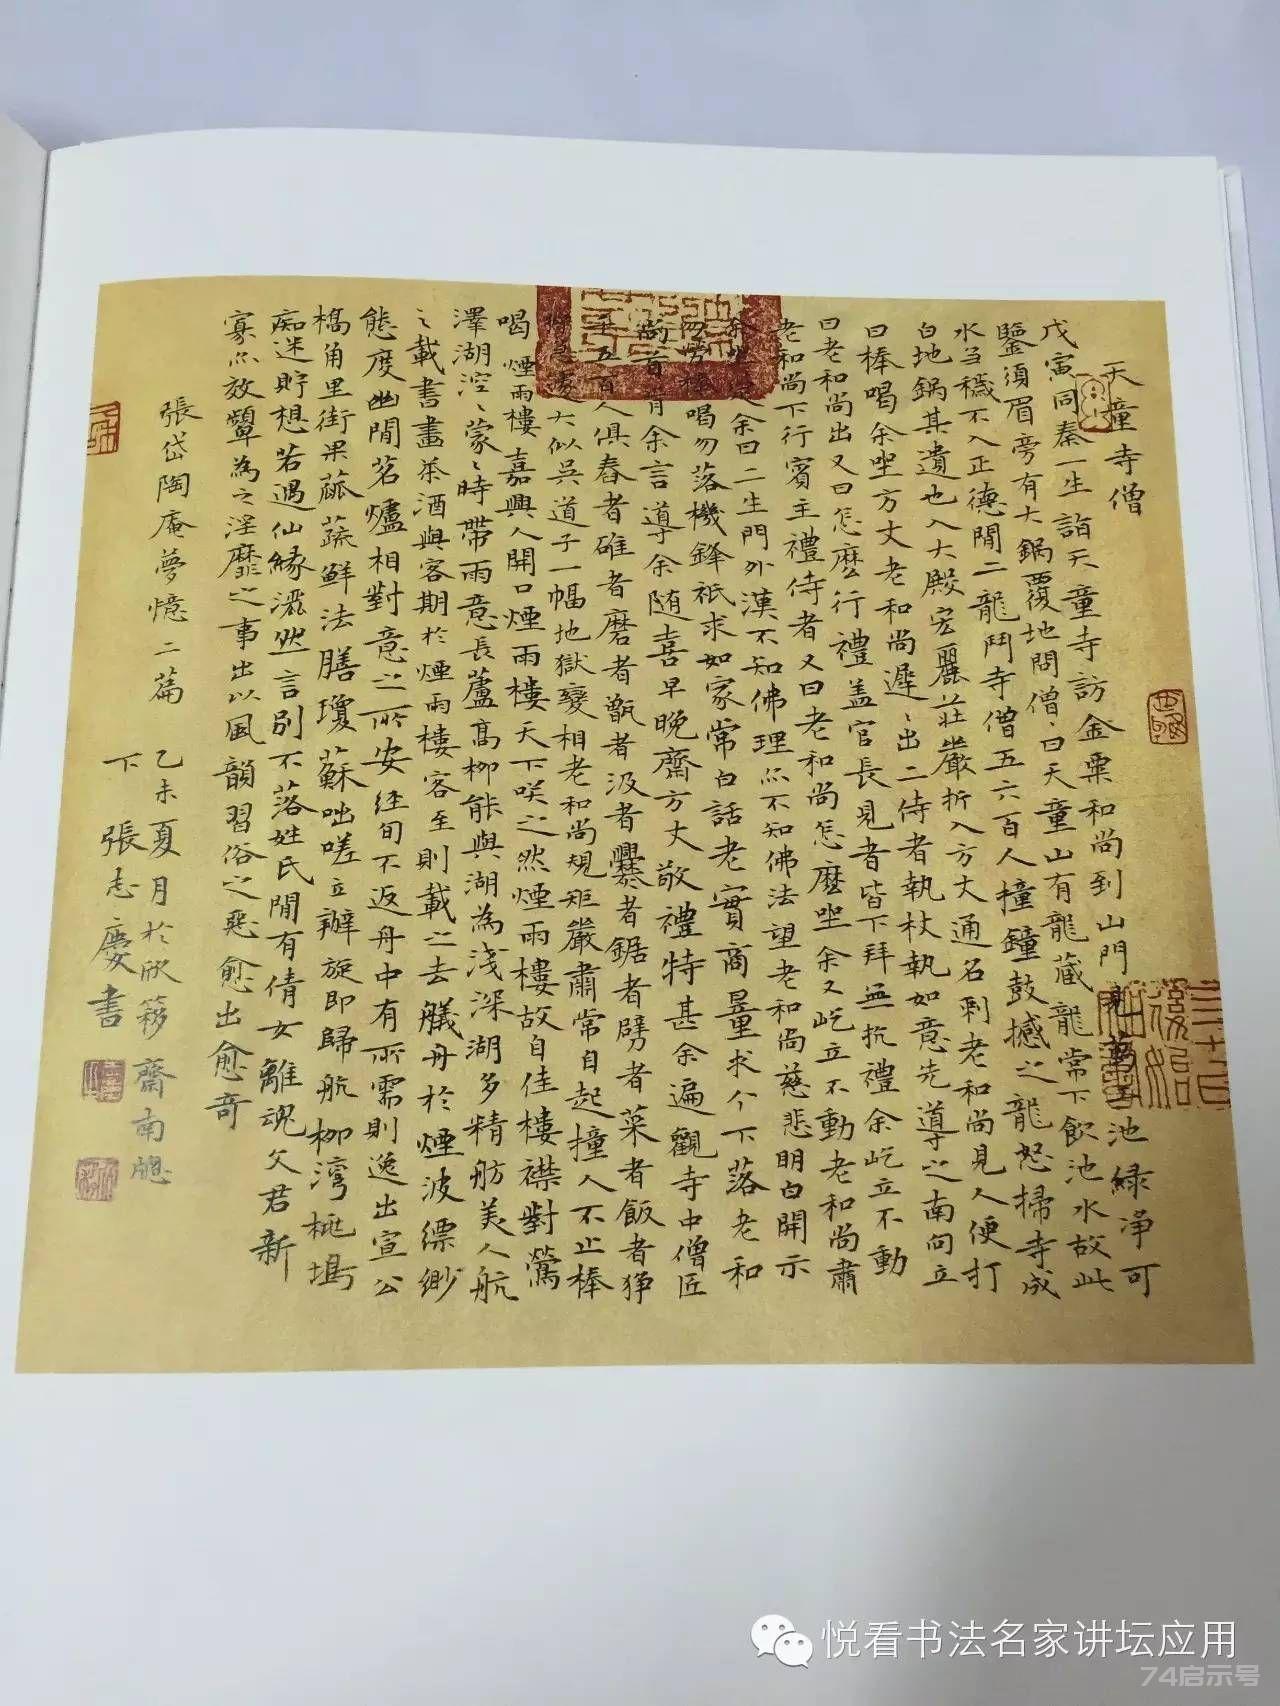 天童寺僧
戊寅同秦一生詣天童寺訪金粟和尚到山門見萬工池綠淨可
鑒須眉旁有大鍋覆地問僧、曰天童山有龍藏龍常下飲池水故此
水芻穢不入正德間二龍鬥寺僧五六百人撞鐘鼓撼之龍怒掃寺成
白地鍋其遺也入大殿宏麗莊嚴折入方丈通名刺老和尚見人便打
曰棒喝余坐方丈老和尚遲、出二侍者執杖執如意先導之南向立
曰老和尚出又曰怎麼行禮蓋官長見者皆下拜無抗禮余屹立不動
老和尚下行賓主禮侍者又曰老和尚怎麼坐余又屹立不動老和尚肅
余坐 定余曰二生門外漢不知佛理亦不知佛法望老和尚慈悲明白開示
勿勞棒喝勿落機鋒祇求如家常白話老實商量求个下落老和
尚首肯余言導余隨喜早晚齋方丈敬禮特甚余遍觀寺中僧匠
千五百人俱舂者碓者磨者甑者汲者爨者鋸者劈者菜者飯者猙
獰急遽大似吳道子一幅地獄變相老和尚規矩嚴肅常自起撞人不止棒
喝 煙雨樓 嘉興人開口煙雨樓天下咲之然煙雨樓故自佳樓襟對鶯
澤湖涳、蒙、時帶雨意長蘆高柳能與湖為淺深湖多精舫美人航
之載書畫茶酒與客期於煙雨樓客至則載之去艤舟於煙波縹緲
態度幽閒茗爐相對意之所安經旬不返舟中有所需則逸出宣公
橋角里街果蓏蔬鮮法膳瓊蘇咄嗟立辦旋即歸航柳灣桃塢
痴迷貯想若遇仙緣灑然言別不落姓氏間有倩女離魂文君新
寡亦放顰為之淫靡之事出以風韻習俗之惡愈出愈奇
張岱陶庵夢憶二篇 乙未夏月於欣簃齋南牕
下 張志慶書
悦看书法名家讲坛应用
74启示号